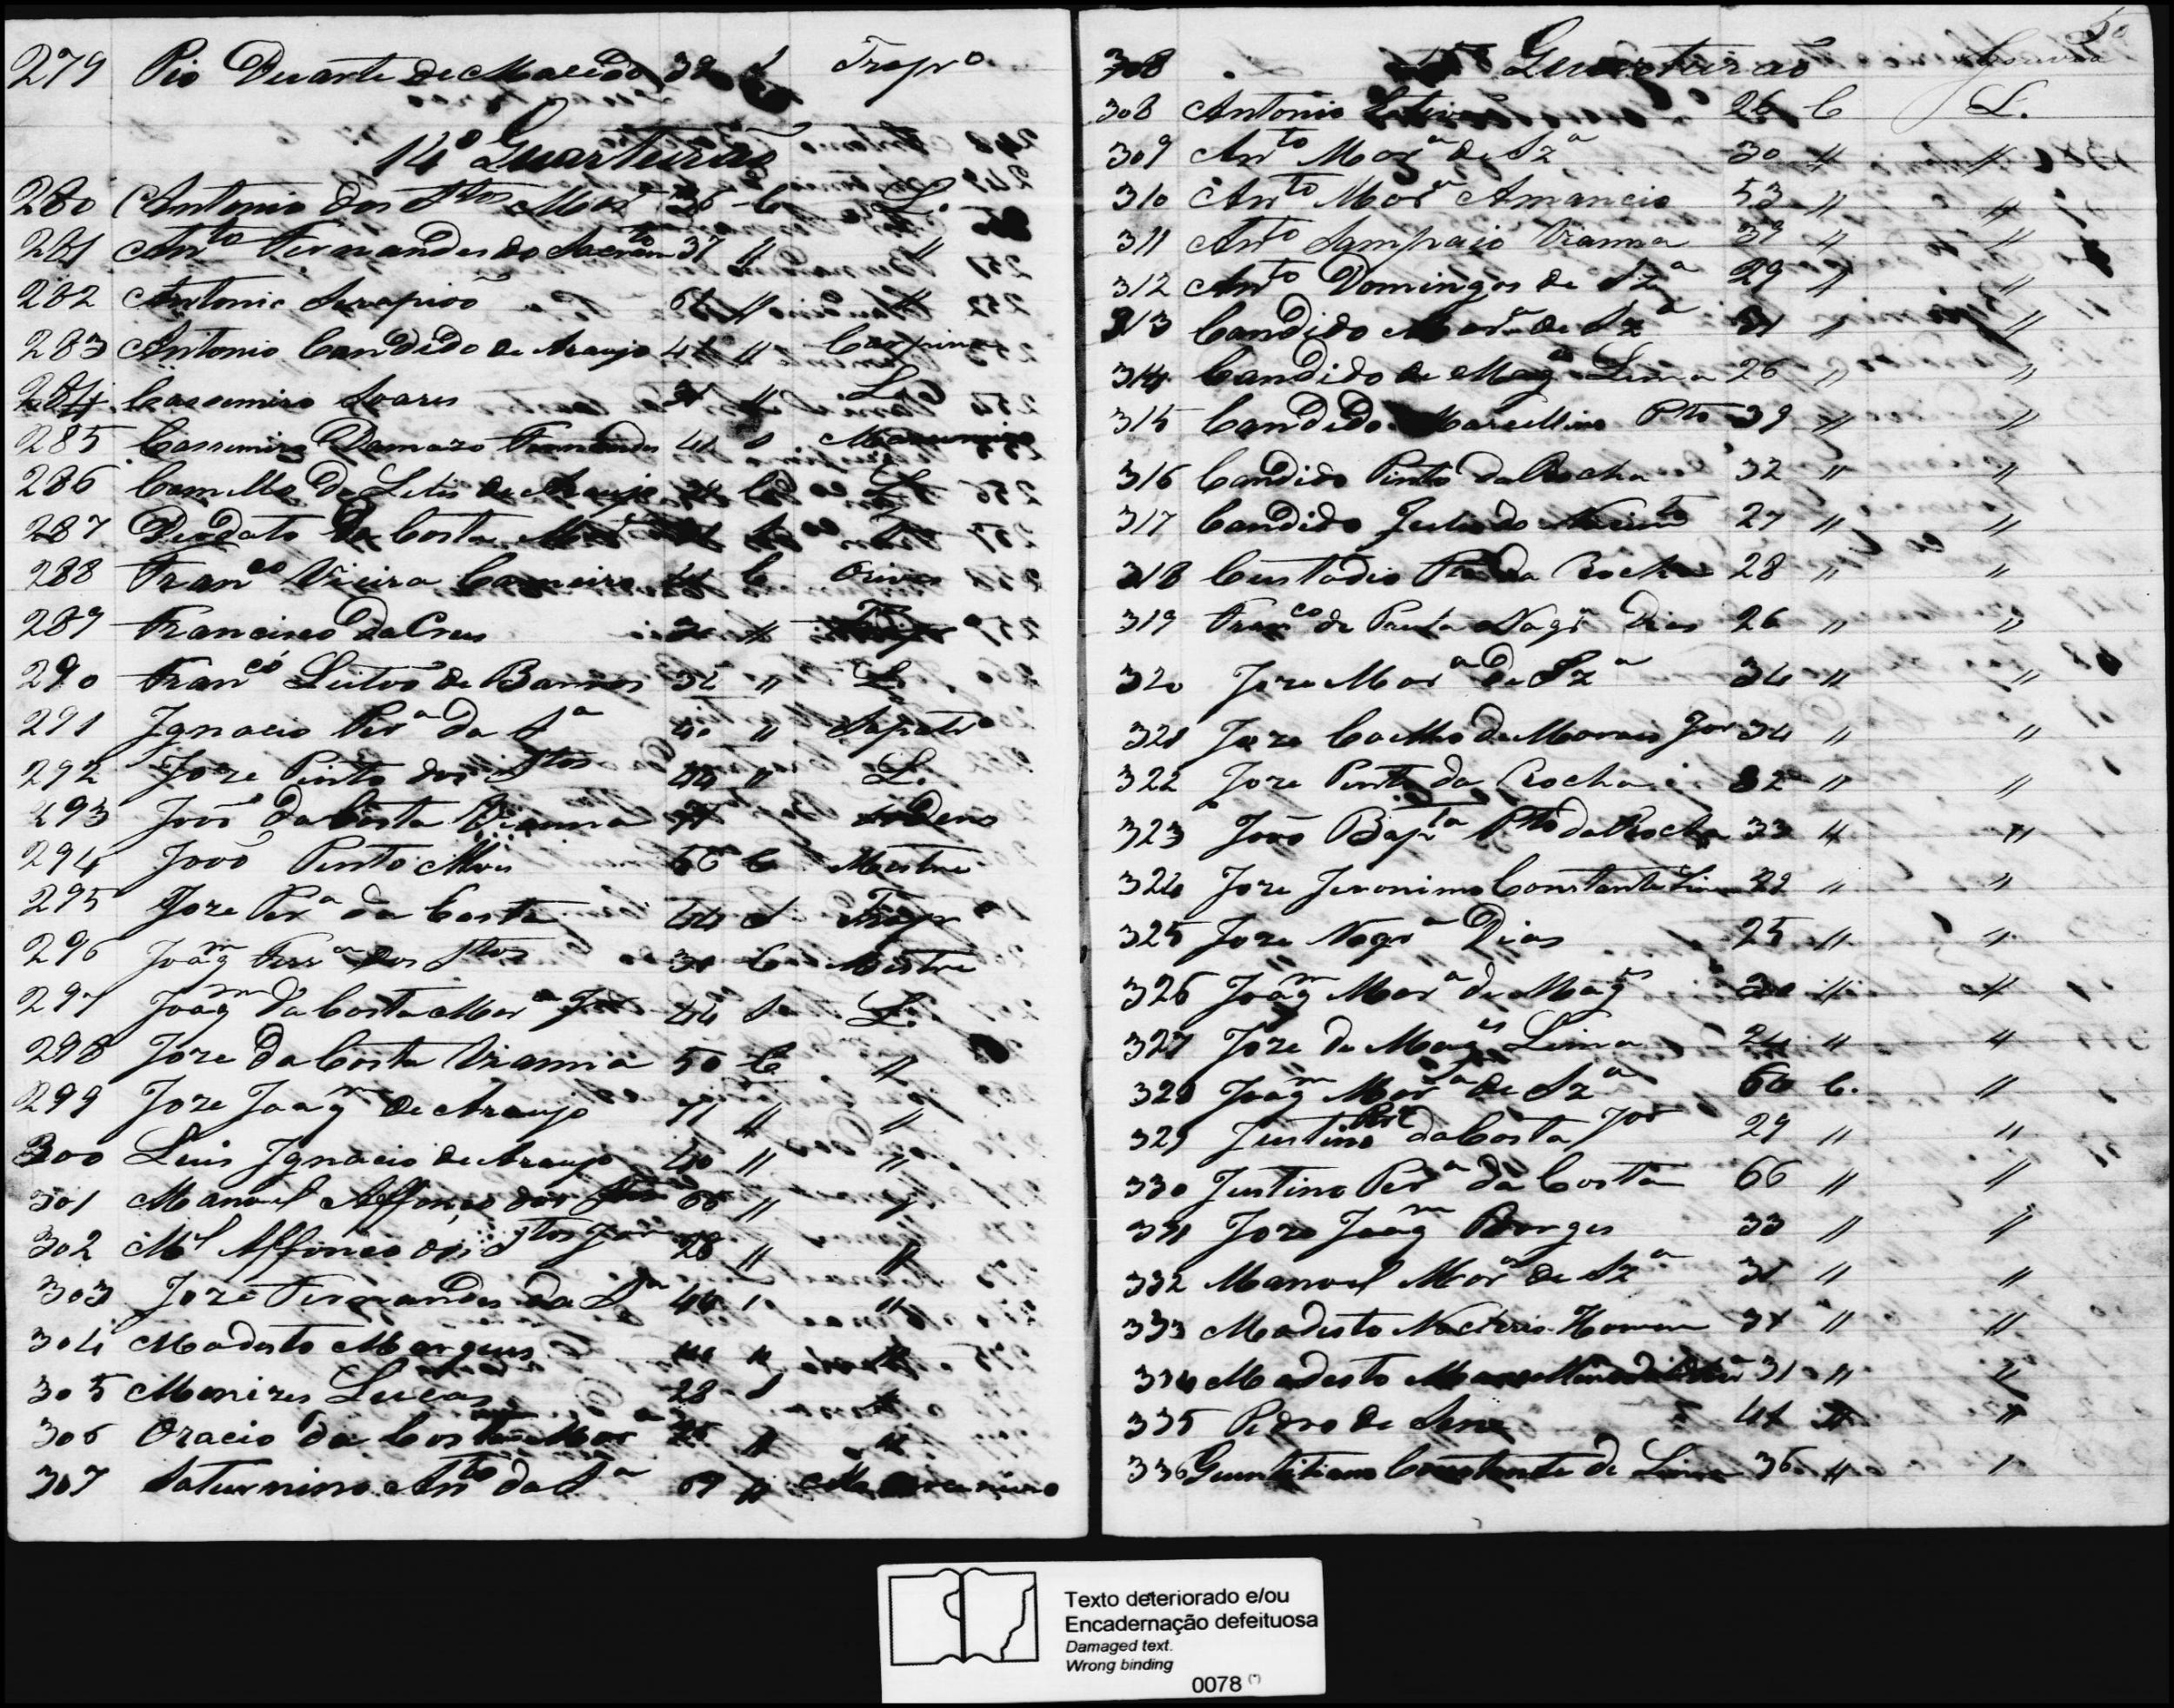 279 Pio Duarte de Macedo 32 S Tropro
14º Quarteirão
280 Antonio dos Stos Mora 36 C L.
281 Anto Fernandes do Sacramto 37 " "
282 Antonio Serapião 61 " "
283 Antonio Candido de Araujo 41 " Carpina
284 Cassemiro Soares 31 " L.
285 Cassemiro Damazo Fernandes 41 S Marcineiro
286 Camillo de Lelis de Araujo C L.
287 Deodato da Costa Mora
288 Franco Vieira Carneiro 41 C Orives
289 Francisco da Crus 30 " Tropro
290 Franco Leitão de Barros 32 " L.
291 Ignacio Pera da Sa 40 " Sapatro
292 Joze Pinto dos Stos 44 " L.
293 João da Costa Vianna
294 João Pinto Alves 56 C Mestre
295 Joze Pera da Costa 44 S Tropro
296 Joaqm Ferra dos Stos 31 C Mestre
297 Joaqm da Costa Mora Jor 44 S L.
298 Joze da Costa Vianna 50 C "
299 Joze Joaqm de Araujo 71 " "
300 Luis Ignacio de Araujo 40 " "
301 Manoel Affonço dos Stos 66 " "
302 Ml Affonco dos Stos Jor 28 " "
303 Joze Fernandes da Sa 44 " "
304 Modesto Marques 40 " "
305 Menizes Lucas 28 S "
306 Oracio da Costa Mora 26 " "
307 Saturnino Anto da Sa 69 " Marceneiro
50
308 15º Quarteirão
308 Antonio 26 C L.
309 Anto Mora de Sza 30 " "
310 Anto Mora Amancio 53 " "
311 Anto Sampaio Vianna 39 " "
312 Anto Domingos de Sza 29 " "
313 Candido Mora de Sza 31 " "
314 Candido de Mages Lima 26 " "
315 Candido Marcellino Pto 39 " "
316 Candido Pinto da Rocha 32 " "
317 Candido Julio do Nascimto 27 " "
318 Custodio Pto da Rocha 28 " "
319 Franco de Paula Nogra Dias 26 " "
320 Joze Mora de Sza 34 " "
321 Joze Coelho de Moraes Jor 34 " "
322 Joze Pinto da Rocha 32 " "
323 João Bapta Pto da Rocha 33 " "
324 Joze Jeronimo Constante Lima 32 " "
325 Joze Nogra Dias 25 " "
326 Joaqm Mora de Mages 30 " "
327 Joze de Mages Lima 24 " "
328 Joaqm Mora de Sza 60 C. "
329 Justino Pera da Costa Jor 29 " "
330 Justino Pera da Costa 66 " "
331 Joze Joaqm Borges 33 " "
332 Manoel Mora de Sza 31 " "
333 Modesto Homem 31 " "
334 Modesto 31 " "
335 Pedro de Sena 41 " "
336 Quintiliano Constante de Lima 36 " "
Texto deteriorado e/ou
Encadernação defeituosa
Damaged text.
Wrong binding
0078 (*)